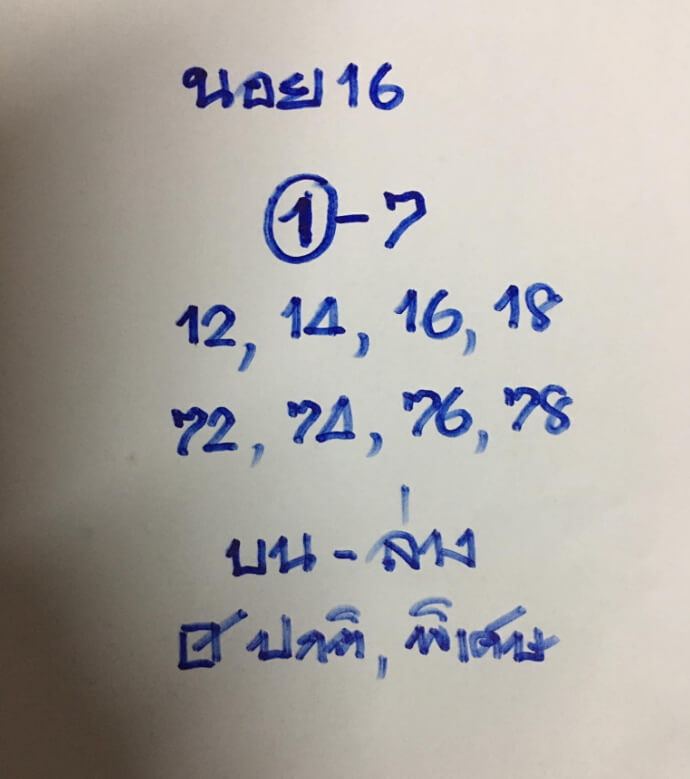 นอย 16
1-7
12, 14, 16, 18
72, 74, 76, 78
บน - ล่าง
☑ ปกติ, พิเศษ